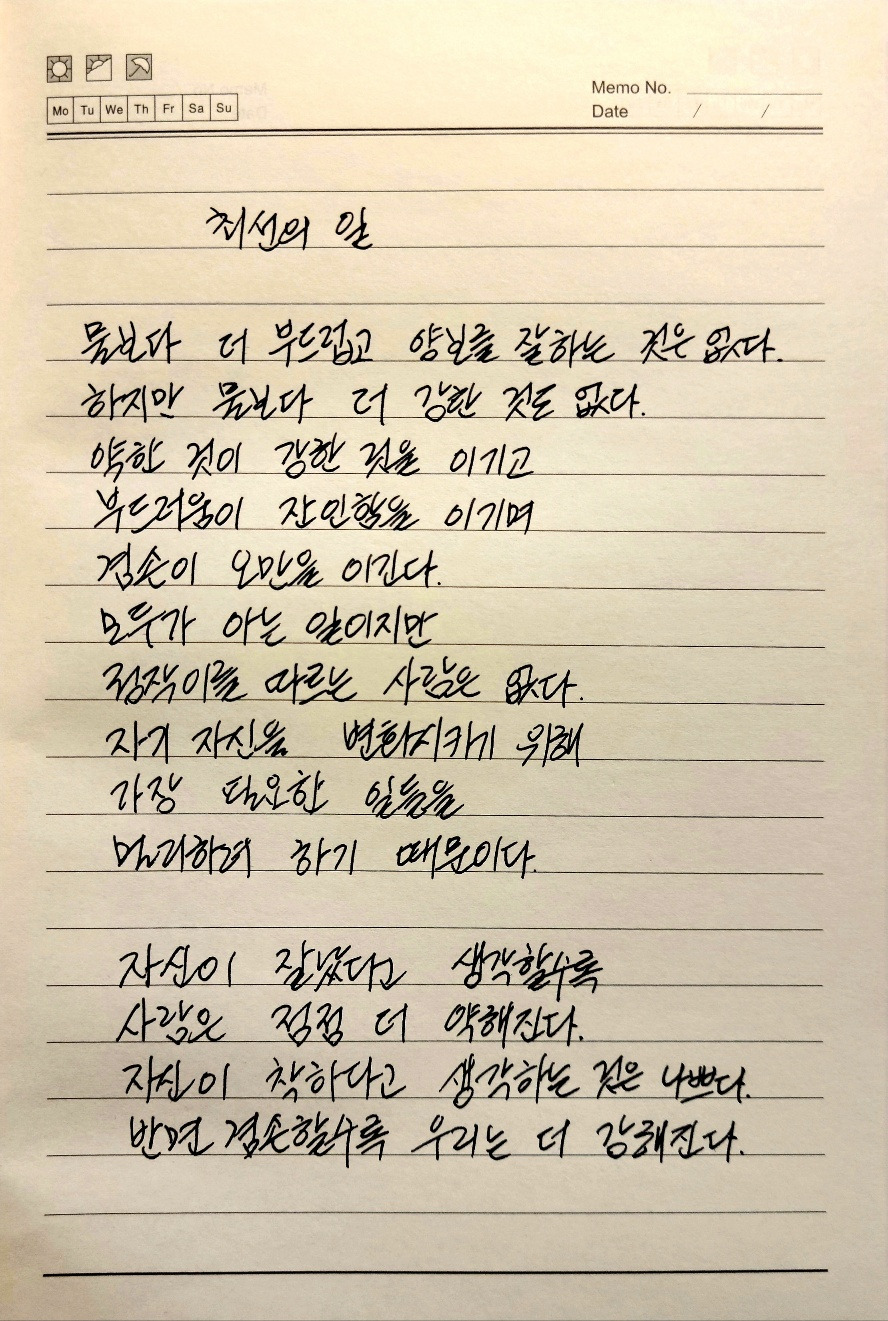 Memo No.
Mo Tu We Th Fr Sa Su
Date / /
최선의 일
물보다 더 부드럽고 양보를 잘하는 것은 없다.
하지만 물보다 더 강한 것도 없다.
약한 것이 강한 것을 이기고
부드러움이 잔인함을 이기며
겸손이 오만을 이긴다.
모두가 아는 일이지만
정작 이를 따르는 사람은 없다.
자기 자신을 변화시키기 위해
가장 필요한 일들을
멀리하려 하기 때문이다.
자신이 잘났다고 생각할수록
사람은 점점 더 약해진다.
자신이 착하다고 생각하는 것은 나쁘다.
반면 겸손할수록 우리는 더 강해진다.